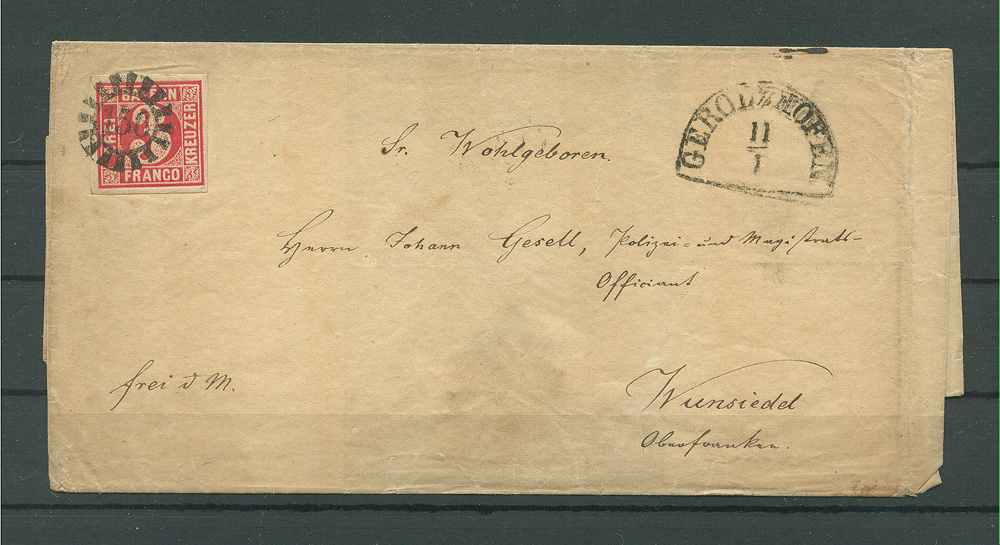 BAYERN
DREI
3
KREUZER
FRANCO
GEROLZHOFEN
11
1
Sr. Wohlgeboren.
Herrn Johann Gesell, Polizei- und Magistrats-
Officiant
frei d M.
Wunsiedel
Oberfranken.